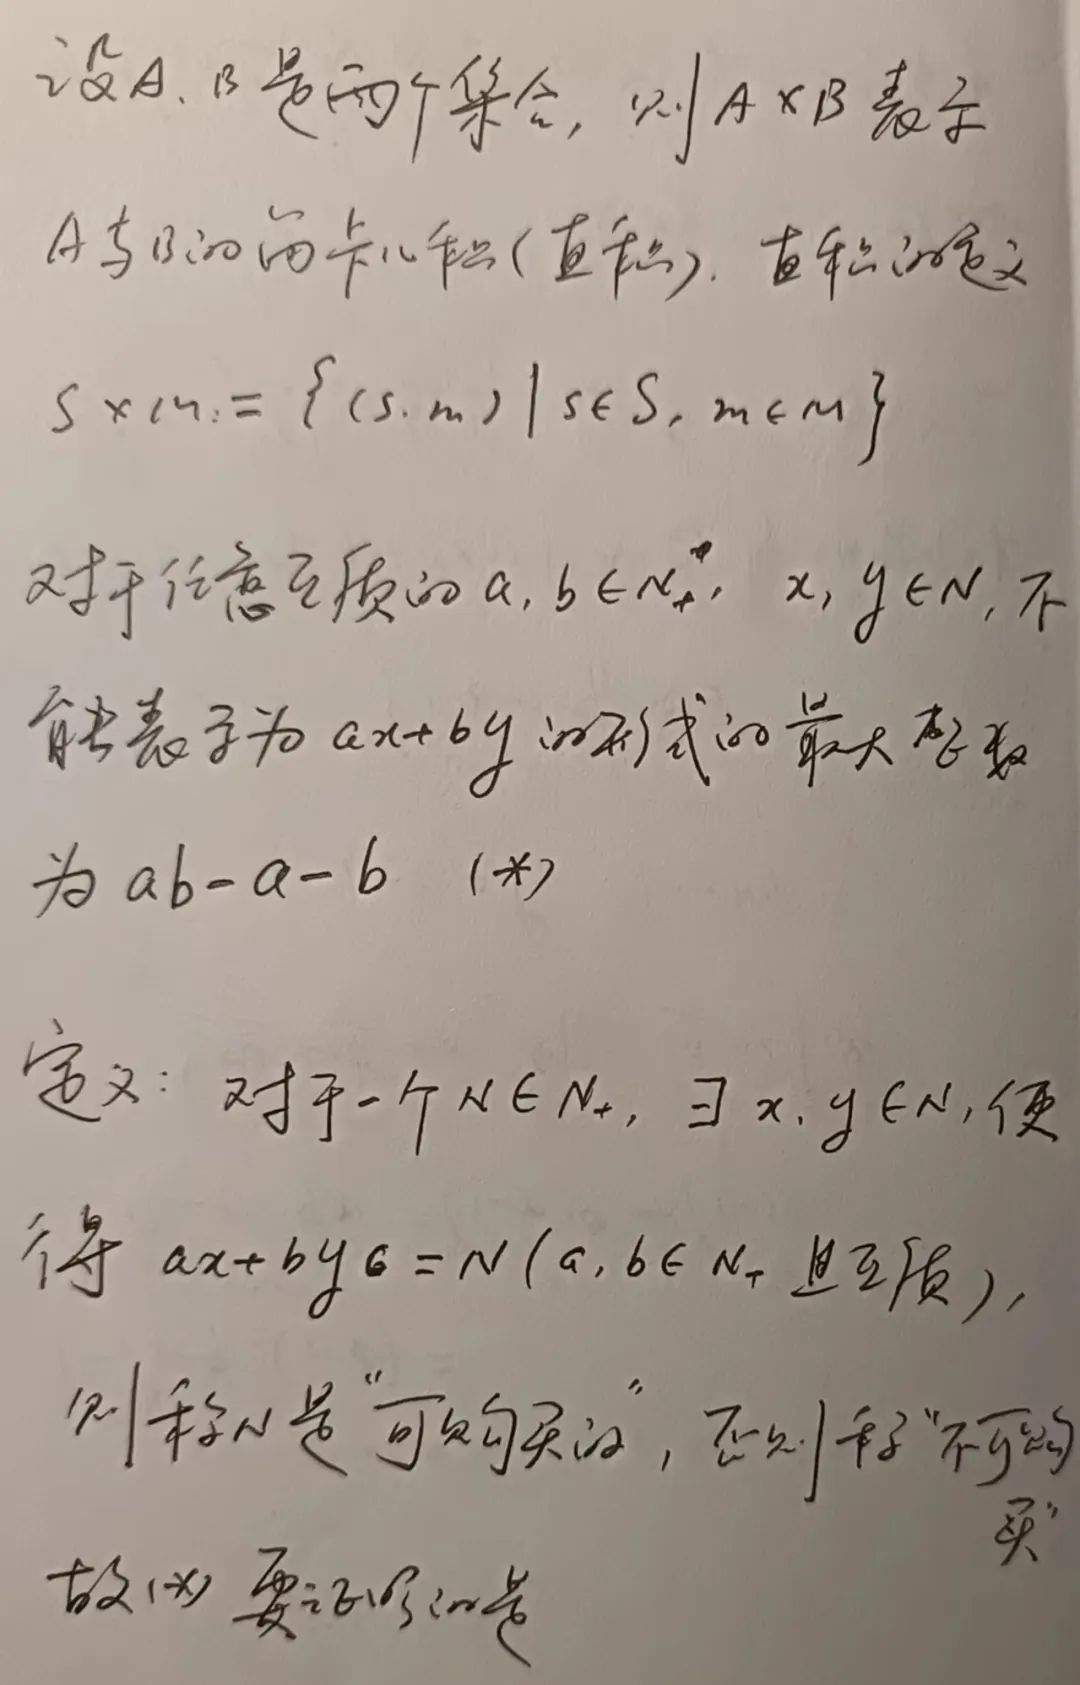 设A、B是两个集合, 则A×B表示
A与B的笛卡儿积(直积). 直积的定义
S×M:={(s.m)|s∈S, m∈M}
对于任意互质的a,b∈N₊*, x,y∈N,不
能表示为ax+by的形式的最大整数
为ab-a-b (*)
定义: 对于一个N∈N₊, ∃x.y∈N,使
得 ax+by=N(a,b∈N₊且互质),
则称N是"可购买的", 否则称"不可购
买"
故(*)要证明的是